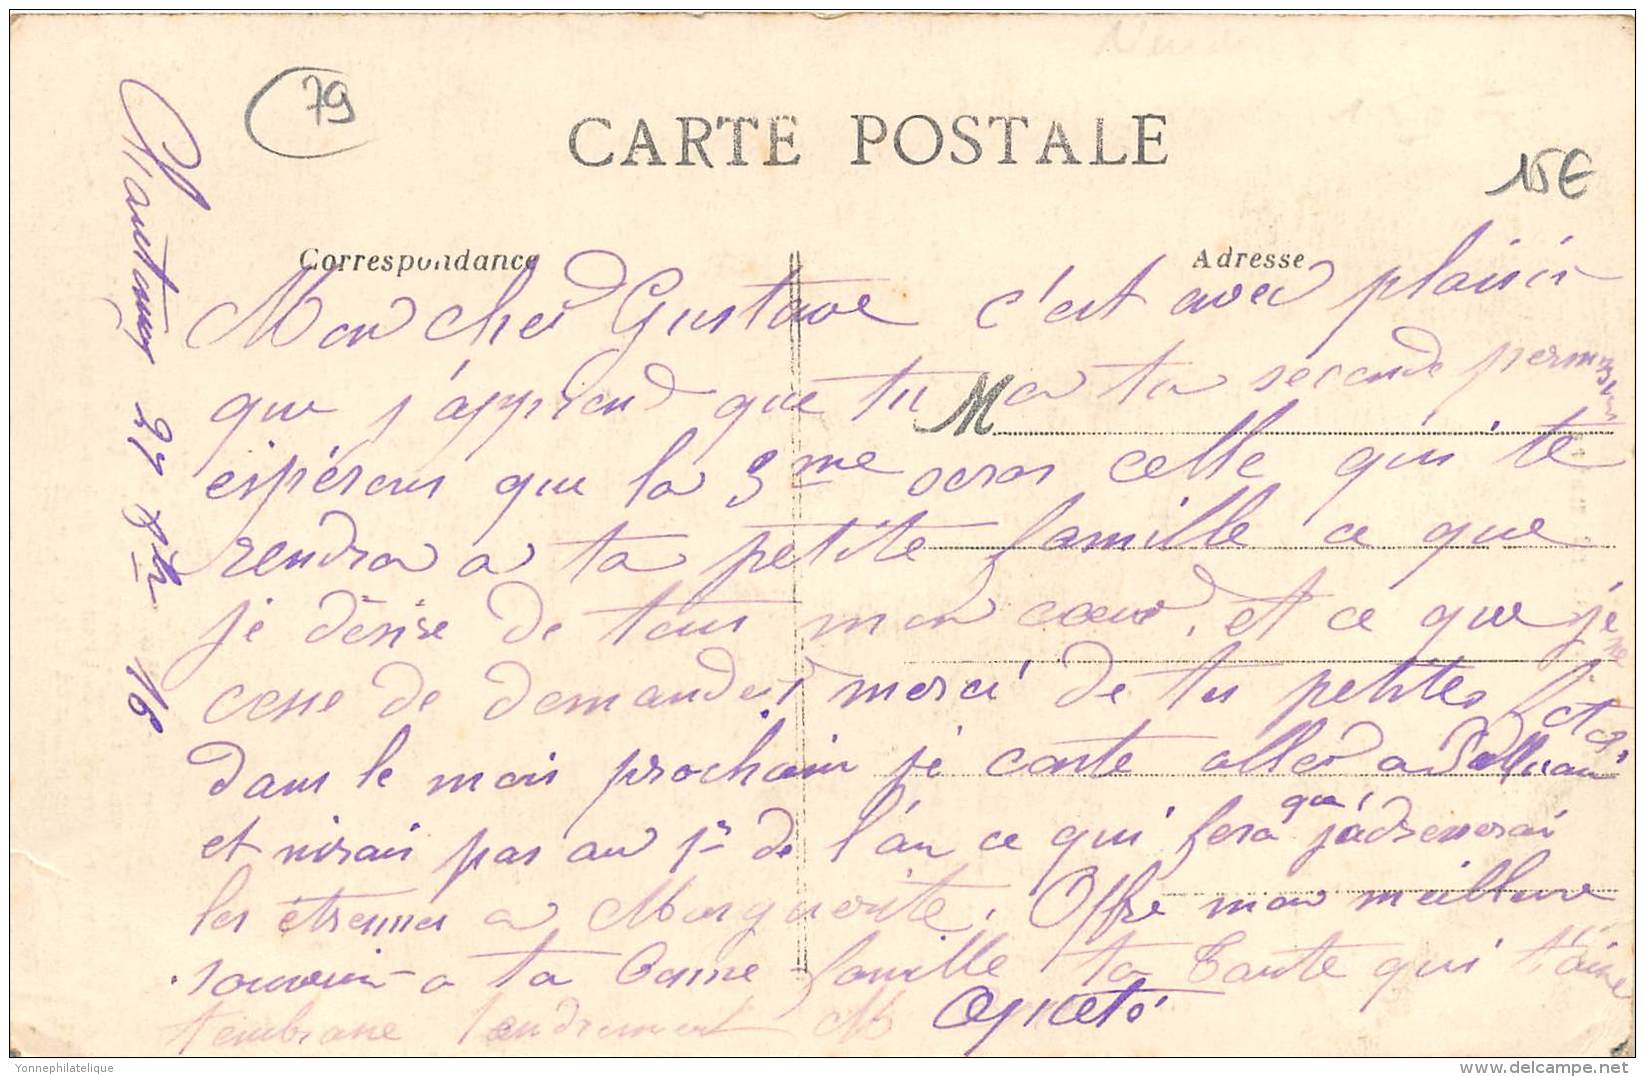 79
CARTE POSTALE
15€
Correspondance
Adresse
27 16
Mon cher Gustave c'est avec plaisir
que j'apprend que tu M a ta seconde
espérons que la 3me sera celle qui te
rendra a ta petite famille ce que
je désire de tous mon cœur. et ce que je ne
cesse de demander merci de tu petites
dans le mois prochain je conte aller a
et nirais pas au 1r de l'an ce qui fera que j'adresserai
les étrennes a Marguerite. Offre mon meilleure
souvenir a ta bonne famille ta tante qui t'aime
tendrement M
Yonnephilatelique
© delcampe.net